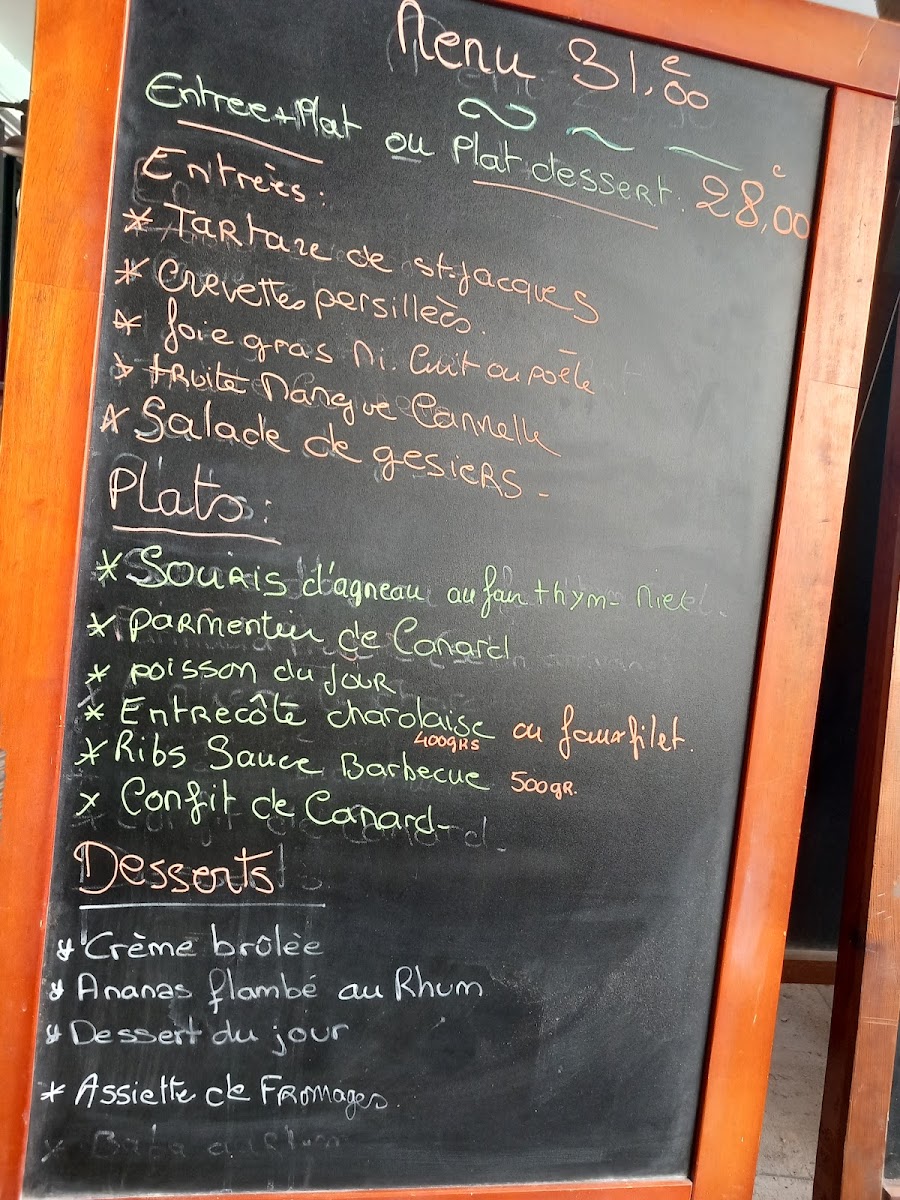 Menu 31,00€
Entree+Plat ou Plat dessert. 28,00€
Entrées :
* Tartare de st-jacques
* Crevettes persilleés.
* foie gras Mi. Cuit ou poêle
* truite Mangue Cannelle
* Salade de gesiers -
Plats :
* Souris d'agneau au four thym - Miel
* parmentier de Canard
* poisson du jour
* Entrecôte charolaise ou faux filet.
400grs
* Ribs Sauce Barbecue 500gr.
* Confit de Canard -
Desserts
* Crème brûlée
* Ananas flambé au Rhum
* Dessert du jour
* Assiette de Fromages.